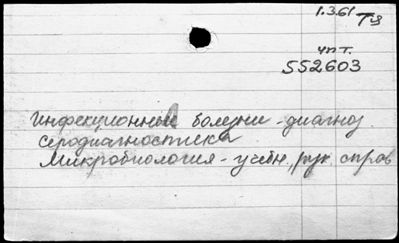 1.3.61 Тц
чп т.
552603
Инфекционные болезни - диагноз
Серодиагностика
Микробиология - учебн., рук. справ